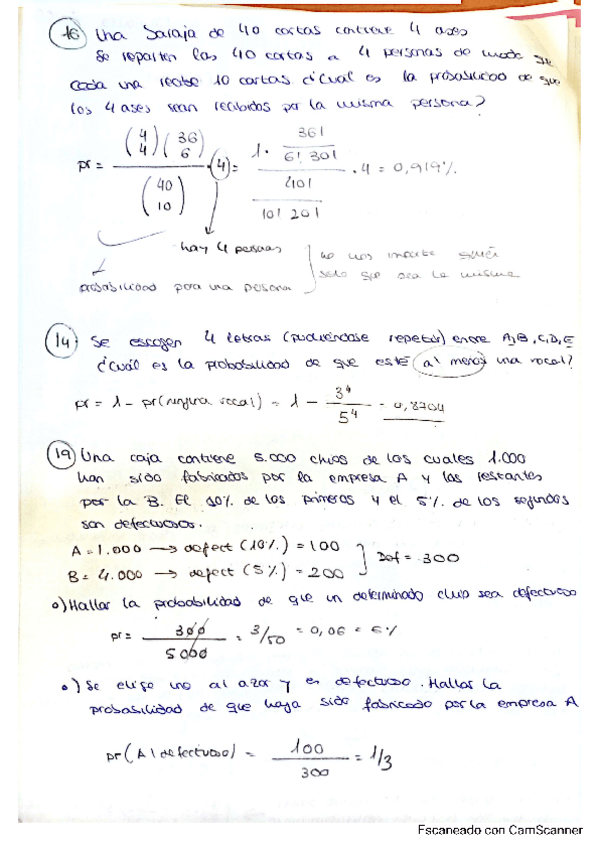 16 Una baraja de 40 cartas contiene 4 ases
Se reparten las 40 cartas a 4 personas de modo que
cada una recibe 10 cartas ¿cuál es la probabilidad de que
los 4 ases sean recibidos por la misma persona?
pr = (4 4)(36 6) / (40 10) · (4) = 1 · 36! / 6! 30! / 40! / 10! 20! · 4 = 0,919%
hay 4 personas
probabilidad para una persona
no nos importa quién
solo que sea la misma
14 Se escogen 4 letras (pudiéndose repetir) entre A,B,C,D,E
¿Cuál es la probabilidad de que esté al menos una vocal?
pr = 1 - pr(ninguna vocal) = 1 - 3⁴ / 5⁴ = 0,8704
19 Una caja contiene 5.000 chips de los cuales 1.000
han sido fabricados por la empresa A y los restantes
por la B. El 10% de los primeros y el 5% de los segundos
son defectuosos.
A = 1.000 → defect (10%) = 100
B = 4.000 → defect (5%) = 200
Def = 300
a) Hallar la probabilidad de que un determinado chip sea defectuoso
pr = 300 / 5000 = 3/50 = 0,06 = 6%
) Se elige uno al azar y es defectuoso. Hallar la
probabilidad de que haya sido fabricado por la empresa A
pr(A | defectuoso) = 100 / 300 = 1/3
Escaneado con CamScanner